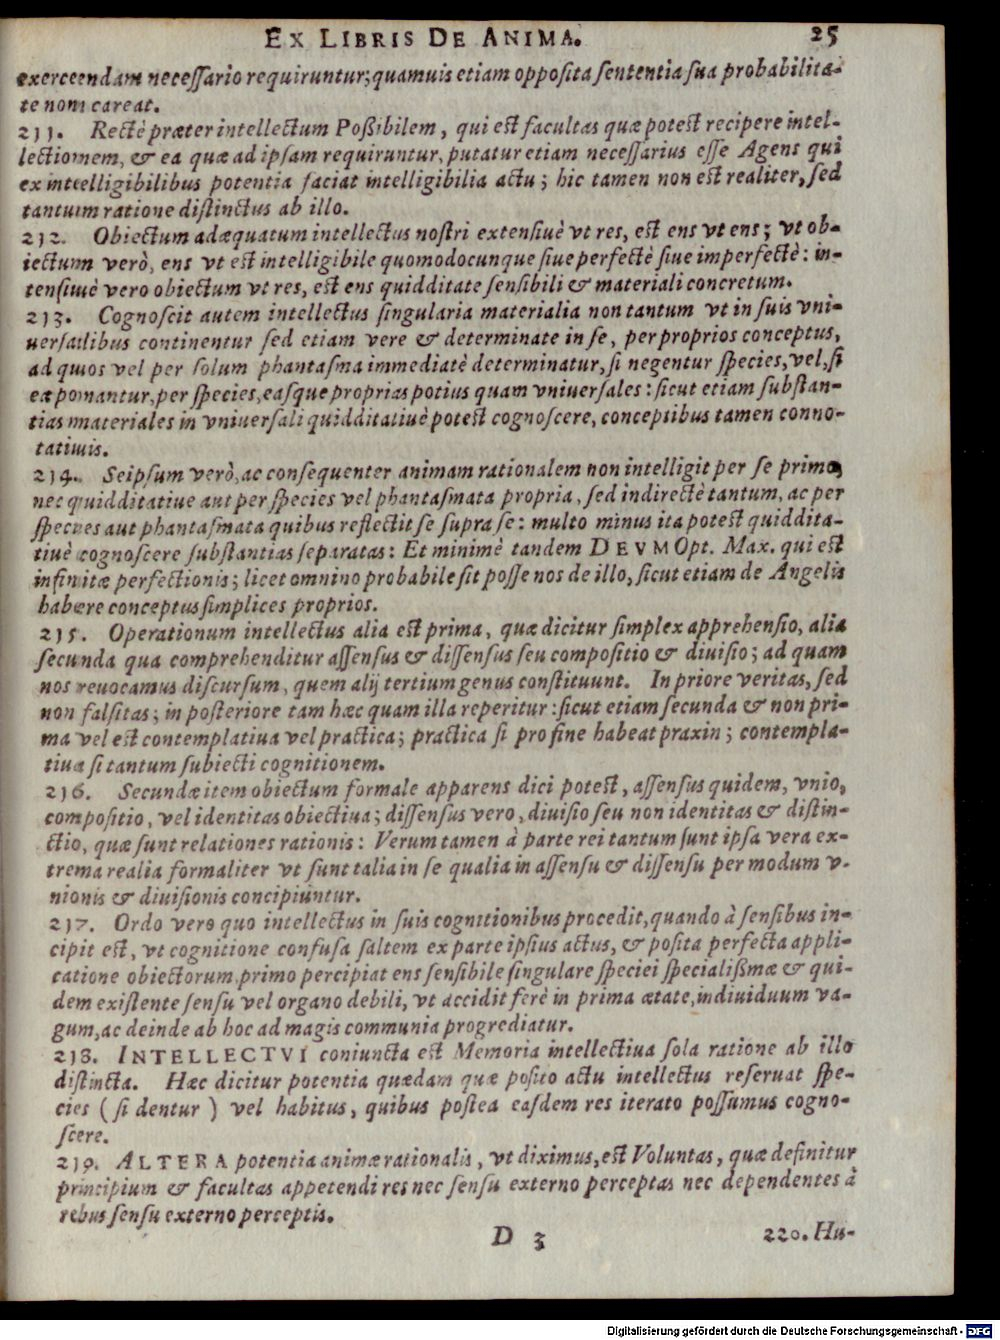 EX LIBRIS DE ANIMA. 25
exerceendam neceſſario requiruntur; quamuis etiam oppoſita ſententia ſua probabilita-
te non careat.
211. Rectè præter intellectum Poßibilem, qui eſt facultas quæ poteſt recipere intel-
lectionem, & ea quæ ad ipſam requiruntur, putatur etiam neceſſarius eſſe Agens qui
ex intelligibilibus potentia faciat intelligibilia actu; hic tamen non eſt realiter, ſed
tantum ratione diſtinctus ab illo.
212. Obiectum adæquatum intellectus noſtri extenſiuè vt res, eſt ens vt ens; vt ob-
iectum verò, ens vt eſt intelligibile quomodocunque ſiue perfectè ſiue imperfectè: in-
tenſiuè vero obiectum vt res, eſt ens quidditate ſenſibili & materiali concretum.
213. Cognoſcit autem intellectus ſingularia materialia non tantum vt in ſuis vni-
uerſalibus continentur ſed etiam vere & determinate in ſe, per proprios conceptus,
ad quos vel per ſolum phantaſma immediatè determinatur, ſi negentur ſpecies, vel, ſi
eæ ponantur, per ſpecies, eaſque proprias potius quam vniuerſales: ſicut etiam ſubſtan-
tias materiales in vniuerſali quidditatiuè poteſt cognoſcere, conceptibus tamen conno-
tatiuis.
214. Seipſum verò, ac conſequenter animam rationalem non intelligit per ſe primo,
nec quidditatiue aut per ſpecies vel phantaſmata propria, ſed indirectè tantum, ac per
ſpecies aut phantaſmata quibus reflectit ſe ſupra ſe: multo minus ita poteſt quiddita-
tiuè cognoſcere ſubſtantias ſeparatas: Et minimè tandem DEVM Opt. Max. qui eſt
infinitæ perfectionis; licet omnino probabile ſit poſſe nos de illo, ſicut etiam de Angelis
habere conceptus ſimplices proprios.
215. Operationum intellectus alia eſt prima, quæ dicitur ſimplex apprehenſio, alia
ſecunda qua comprehenditur aſſenſus & diſſenſus ſeu compoſitio & diuiſio; ad quam
nos reuocamus diſcurſum, quem alij tertium genus conſtituunt. In priore veritas, ſed
non falſitas; in poſteriore tam hæc quam illa reperitur: ſicut etiam ſecunda & non pri-
ma vel eſt contemplatiua vel practica; practica ſi pro fine habeat praxin; contempla-
tiua ſi tantum ſubiecti cognitionem.
216. Secundæ item obiectum formale apparens dici poteſt, aſſenſus quidem, vnio,
compoſitio, vel identitas obiectiua; diſſenſus vero, diuiſio ſeu non identitas & diſtin-
ctio, quæ ſunt relationes rationis: Verum tamen à parte rei tantum ſunt ipſa vera ex-
trema realia formaliter vt ſunt talia in ſe qualia in aſſenſu & diſſenſu per modum v-
nionis & diuiſionis concipiuntur.
217. Ordo vero quo intellectus in ſuis cognitionibus procedit, quando à ſenſibus in-
cipit eſt, vt cognitione confuſa ſaltem ex parte ipſius actus, & poſita perfecta appli-
catione obiectorum, primo percipiat ens ſenſibile ſingulare ſpeciei ſpecialißmæ & qui-
dem exiſtente ſenſu vel organo debili, vt accidit ferè in prima ætate, indiuiduum va-
gum, ac deinde ab hoc ad magis communia progrediatur.
218. INTELLECTVI coniuncta eſt Memoria intellectiua ſola ratione ab illo
diſtincta. Hæc dicitur potentia quædam quæ poſito actu intellectus reſeruat ſpe-
cies ( ſi dentur ) vel habitus, quibus poſtea eaſdem res iterato poſſumus cogno-
ſcere.
219. ALTERA potentia animæ rationalis, vt diximus, eſt Voluntas, quæ definitur
principium & facultas appetendi res nec ſenſu externo perceptas nec dependentes à
rebus ſenſu externo perceptis.
D 3 220. Hu-
Digitalisierung gefördert durch die Deutsche Forschungsgemeinschaft - DFG